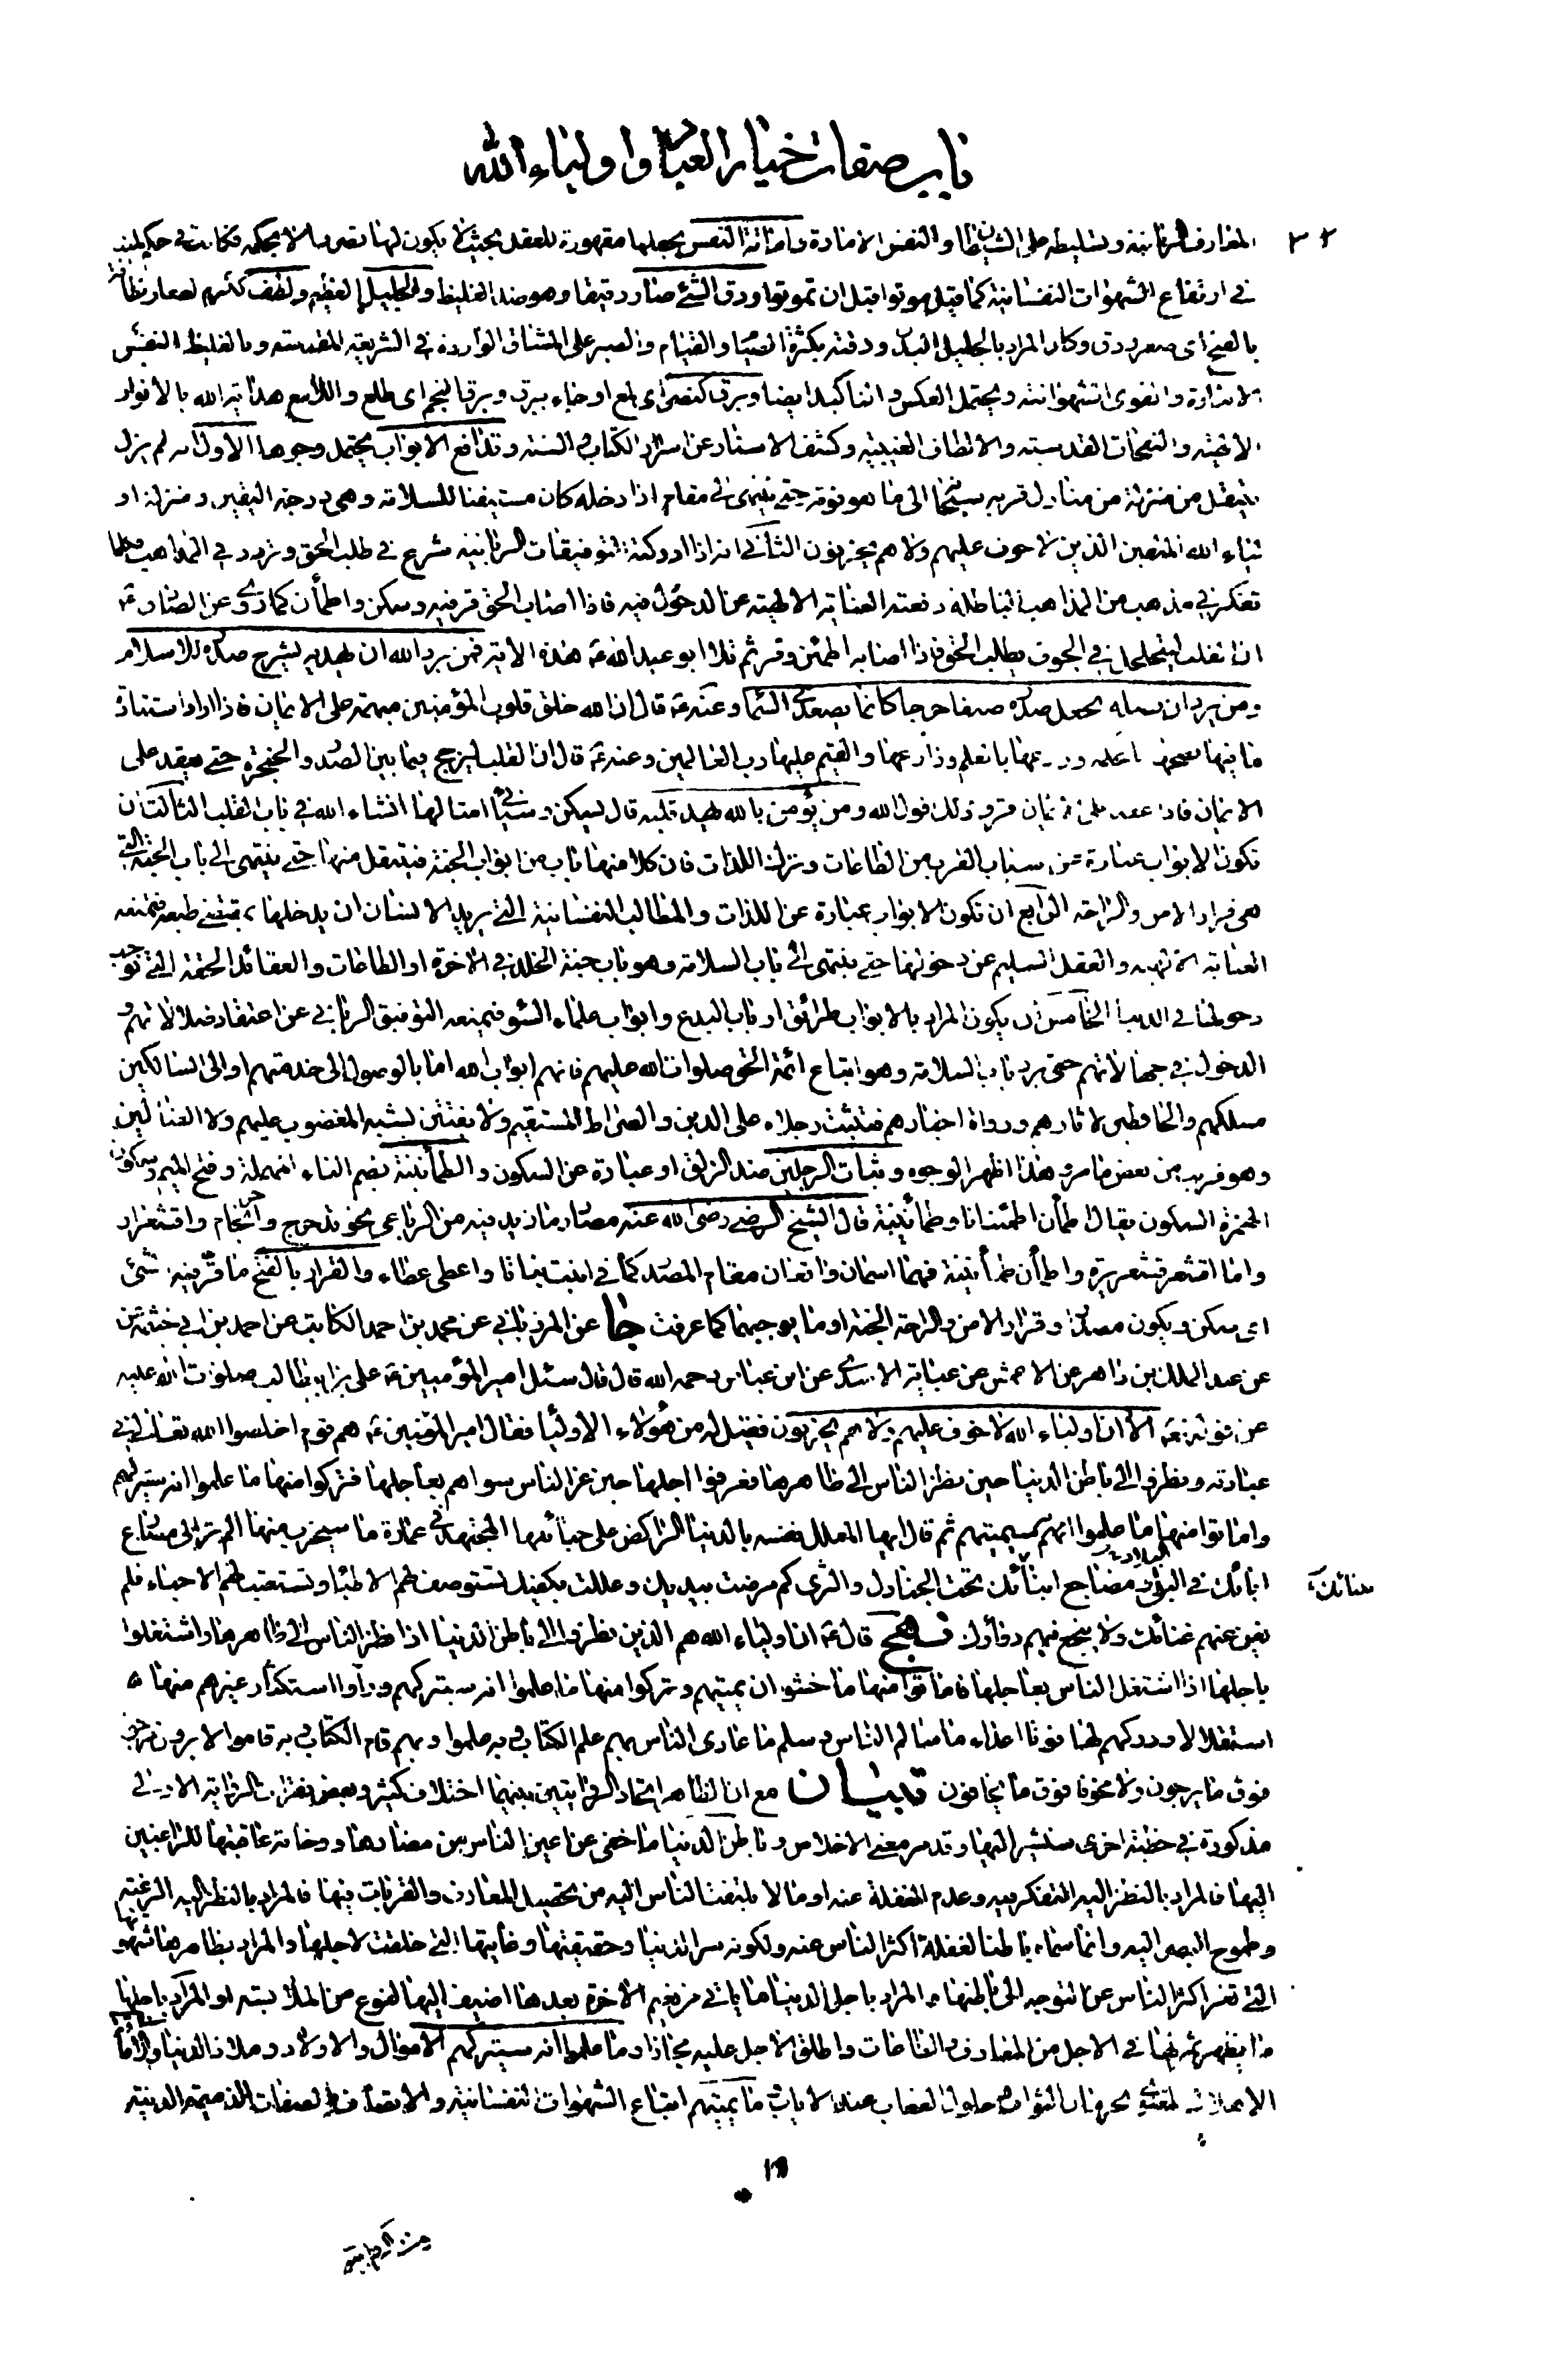 باب صفات خيار العباد و اولياء الله
المعارف الربانية وتسليطه على الشيطان والنفس الامارة واماتة النفس بجعلها مقهورة للعقل بحيث لا يكون لها تصرف الا بحكمه فكانت في حكم الميت
في ارتفاع الشهوات النفسانية كما قيل موتوا قبل ان تموتوا ودق الشئ صار دقيقا وهو ضد الغليظ والجليل العظيم ولطف ككرم لطفا ولطافة
بالفتح اى صغر ودق وكان المراد بالجليل البدن ودقته بكثرة الصيام والقيام والصبر على المشاق الواردة في الشريعة المقدسة وبالغليظ النفس
الامارة والقوى الشهوانية ويحتمل العكس والتاكيد ايضا وبرق كنصر اى لمع او جاء ببرق وبرق النجم اى طلع واللامع هداية الله بالانوار
الالهية والنفحات القدسية والالطاف الغيبية وكشف الاستار عن اسرار الكتاب والسنة وتدافع الابواب يحتمل وجوها الاول انه لم يزل
ينتقل من منزلة من منازل قربه سبحانه الى ما هو فوقه حتى ينتهى الى مقام اذا دخله كان مستيقنا للسلامة وهى درجة اليقين ومنزلة او
لياء الله المتقين الذين لا خوف عليهم ولا هم يحزنون الثاني انه اذا ادركته التوفيقات الربانية شرع في طلب الحق وتردد في المذاهب فكلما
تفكر في مذهب من المذاهب الباطلة دفعته العناية الالهية عن الدخول فيه فاذا اصاب الحق قر فيه وسكن واطمأن كما روى عن الصادق ع
ان القلب ليتجلجل في الجوف يطلب الحق فاذا اصابه اطمئن وقر ثم تلا ابو عبد الله ع هذه الاية فمن يرد الله ان يهديه يشرح صدره للاسلام
ومن يرد ان يضله يجعل صدره ضيقا حرجا كانما يصعد في السماء وعنه ع قال ان الله خلق قلوب المؤمنين مبهمة على الايمان فاذا اراد استنارة
ما فيها بالحكمة وزرعها بالعلم وزارعها والقيم عليها رب العالمين وعنه ع قال ان القلب ليرجج فيما بين الصدر والحنجرة حتى يعقد على
الايمان فاذا عقد على الايمان قر وذلك قول الله ومن يؤمن بالله يهد قلبه قال يسكن وسيأتي امثالها انشاء الله في باب القلب الثالث ان
تكون الابواب عبارة عن اسباب القرب من الطاعات وترك اللذات فان كلا منها باب من ابواب الجنة فينتقل منها حتى ينتهى الى باب الجنة التي
هى قرار الامن والراحة الرابع ان تكون الابواب عبارة عن اللذات والمطالب النفسانية التي يريد الانسان ان يدخلها بمقتضى طبعه فتمنعه
العناية الالهية والعقل السليم عن دخولها حتى ينتهى الى باب السلامة وهو باب جنة الخلد في الاخرة او الطاعات والعقائد الحقة التي توجب
دخولها في الدنيا الخامس ان يكون المراد بالابواب طرائق ارباب البدع وابواب علماء السوء فيمنعه التوفيق الرباني عن اعتقاد ضلالاتهم و
الدخول في جهالاتهم حتى يرد باب السلامة وهو اتباع ائمة الحق صلوات الله عليهم فانهم ابواب الله اما بالوصول الى خدمتهم او الى السالكين
مسلكهم والحافظين لاثارهم ورواة اخبارهم فتثبت رجلاه على الدين والصراط المستقيم ولا يفتتن بشبه المغضوب عليهم ولا الضالين
وهو قريب من بعض ما مر وهذا اظهر الوجوه وثبات الرجلين ضد الزلق او عبارة عن السكون والطمأنينة بضم الطاء المهملة وفتح الميم وسكون
الهمزة السكون يقال اطمأن اطمئنانا وطمأنينة قال الشيخ الرضى رضى الله عنه مصادر ما زيد فيه من الرباعى نحو تدحرج واحرنجام واقشعرار
واما اقشعر قشعريرة واطمأن طمأنينة فهما اسمان واقعان مقام المصدر كما في انبت نباتا واعطى عطاء والقرار بالفتح ما قر فيه شئ
اى سكن ويكون مصدرا وقرار الامن والراحة الجنة او ما يوجبهما كما عرفت جا عن المرزباني عن محمد بن احمد الكاتب عن احمد بن ابى خيثمة
عن عبد الملك بن داهر عن الاعمش عن عباية الاسدى عن ابن عباس رحمه الله قال قال سئل امير المؤمنين ع على بن ابيطالب صلوات الله عليه
عن قوله تعالى الا ان اولياء الله لا خوف عليهم ولا هم يحزنون فقيل له من هؤلاء الاولياء فقال امير المؤمنين ع هم قوم اخلصوا لله تعالى في
عبادته ونظروا الى باطن الدنيا حين نظر الناس الى ظاهرها فعرفوا اجلها حين غر الناس سواهم بعاجلها فتركوا منها ما علموا انه سيتركهم
واماتوا منها ما علموا انه سيميتهم ثم قال ايها المعلل نفسه بالدنيا الراكض على حبائلها المجتهد في عمارة ما سيخرب منها الم تر الى مصارع
ابائك في البلى ومضاجع ابنائك تحت الجنادل والثرى كم مرضت بيديك وعللت بكفيك تستوصف لهم الاطباء وتستعتب لهم الاحباء فلم
يغن عنهم غنائك ولا ينجع فيهم دواؤك نهج قال ع ان اولياء الله هم الذين نظروا الى باطن الدنيا اذا نظر الناس الى ظاهرها واشتغلوا
باجلها اذا اشتغل الناس بعاجلها فاماتوا منها ما خشوا ان يميتهم وتركوا منها ما علموا انه سيتركهم ورأوا استكثار غيرهم منها
استقلالا ودركهم لها فوتا اعداء ما سالم الناس وسلم ما عادى الناس بهم علم الكتاب وبه علموا وبهم قام الكتاب وبه قاموا لا يرون مرجوا
فوق ما يرجون ولا مخوفا فوق ما يخافون تبيان مع ان الظاهر اتحاد الروايتين بينهما اختلاف كثير وبعض فقرات الرواية الاولى
مذكورة في خطبة اخرى سنشير اليها وقد مر معنى الاخلاص وباطن الدنيا ما خفى عن اعين الناس من مضارها ووخامة عاقبتها للراغبين
اليها فالمراد بالنظر اليه التفكر فيه وعدم الغفلة عنه او ما لا يلتفت الناس اليه من تحصيل المعارف والقربات فيها فالمراد بالنظر اليه الرغبة
وطموح البصر اليه وانما سماه باطنا لغفلة اكثر الناس عنه ولكونه سر الدنيا وحقيقتها وغايتها التي خلقت لاجلها والمراد بظاهرها شهواتها
التي تغر اكثر الناس عن التوجه الى باطنها والمراد باجل الدنيا ما ياتي من نعيم الاخرة بعدها اضيف اليها لنوع من الملابسة او المراد باجلها
ما يظهر ثمرتها في الاجل من المعارف والطاعات واطلق الاجل عليه مجازا وما علموا انه سيتركهم الاموال والاولاد وملاذ الدنيا والمراد
الاماتة الحرمان الثواب وحلول العقاب عند الاياب ما يميتهم اتباع الشهوات النفسانية والاتصاف بالصفات الذميمة الدنية